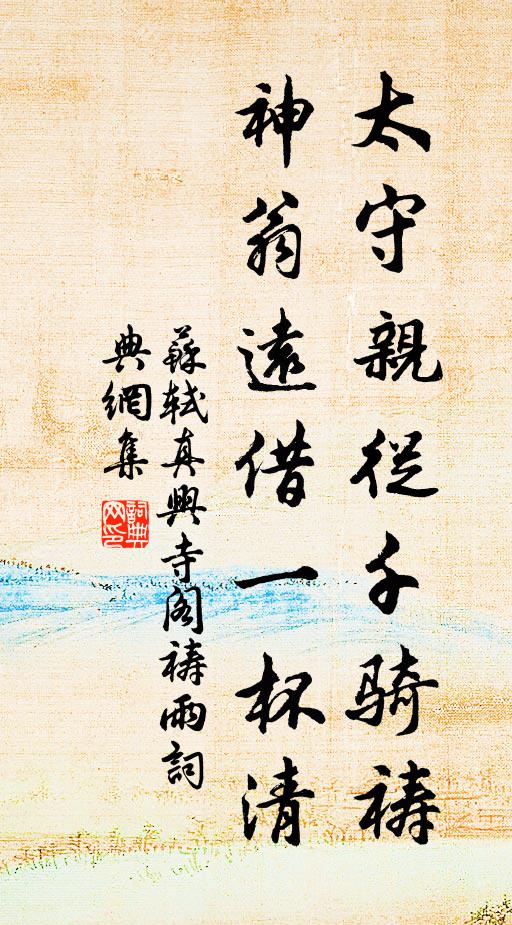 太守親從千骑祷
神翁遠借一杯清
蘇轼真興寺阁祷雨詞
典網集
詞典网印